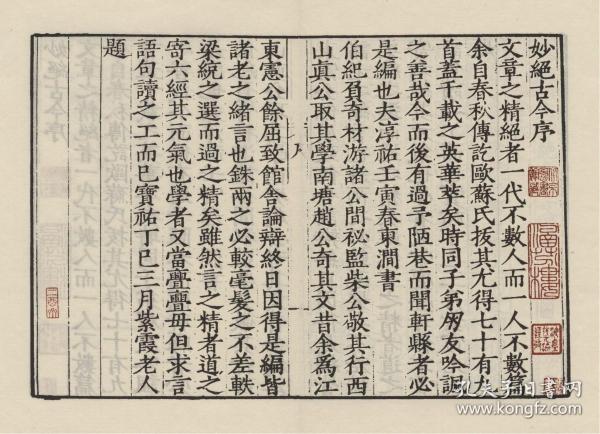 妙絕古今序
文章之精絕者一代不數人而一人不數篇
余自春秋傳訖歐蘇氏拔其尤得七十有九
首蓋千載之英華萃矣時同子弟朋友吟諷
之善哉今而後有過予陋巷而聞軒縣者必
是編也夫淳祐壬寅春東澗書
伯紀負奇材游諸公間祕監柴公敬其行西
山真公取其學南塘趙公奇其文昔余爲江
東憲公餘屈致館舍論辯終日因得是編皆
諸老之緒言也銖兩之必較毫髮之不差軼
梁統之選而過之精矣雖然言之精者道之
寄六經其元氣也學者又當亹亹毋但求言
語句讀之工而巳寶祐丁巳三月紫霞老人
題
孔夫子旧书网
www.kongfz.com